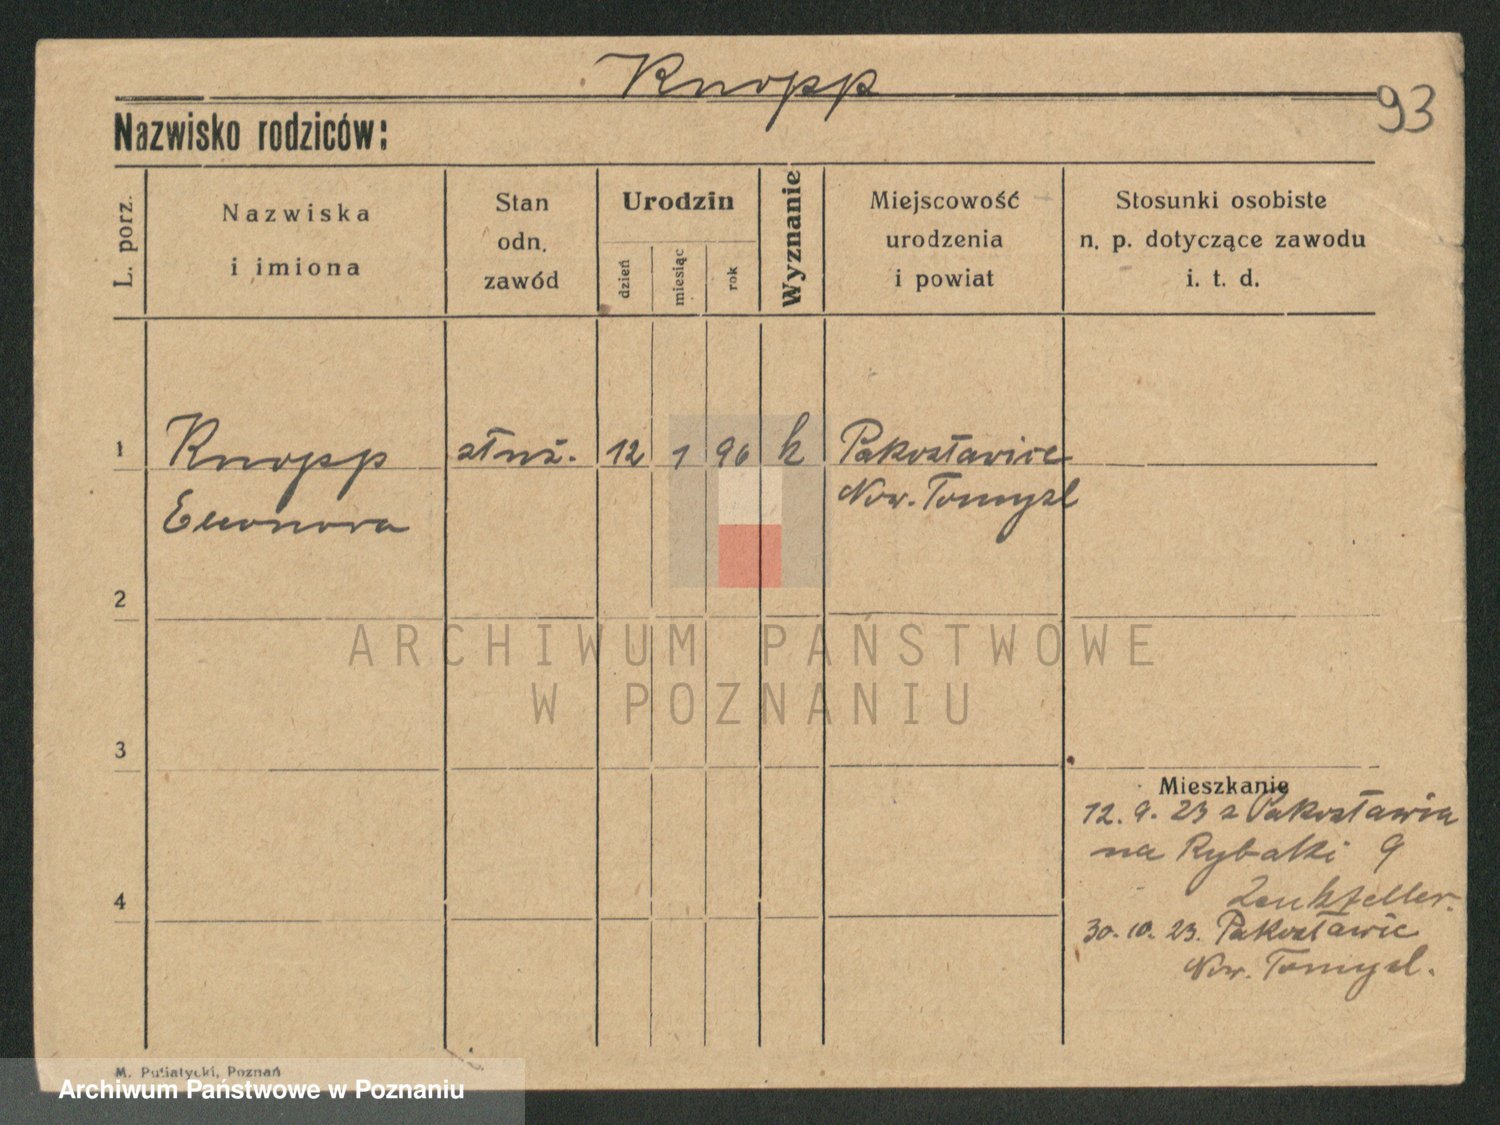 Knopp
93
Nazwisko rodziców:
L. porz.
Nazwiska
i imiona
Stan
odn.
zawód
Urodzin
dzień
miesiąc
rok
Wyznanie
Miejscowość
urodzenia
i powiat
Stosunki osobiste
n. p. dotyczące zawodu
i. t. d.
1
Knopp
Eleonora
służ.
12
1
96
k
Pakosławice
Now. Tomyśl
2
ARCHIWUM PAŃSTWOWE
W POZNANIU
3
Mieszkanie
12. 9. 23 z Pakosławia
na Rybaki 9
4
30. 10. 23. Pakosławic
Now. Tomyśl.
M. Putiatycki, Poznań
Archiwum Państwowe w Poznaniu